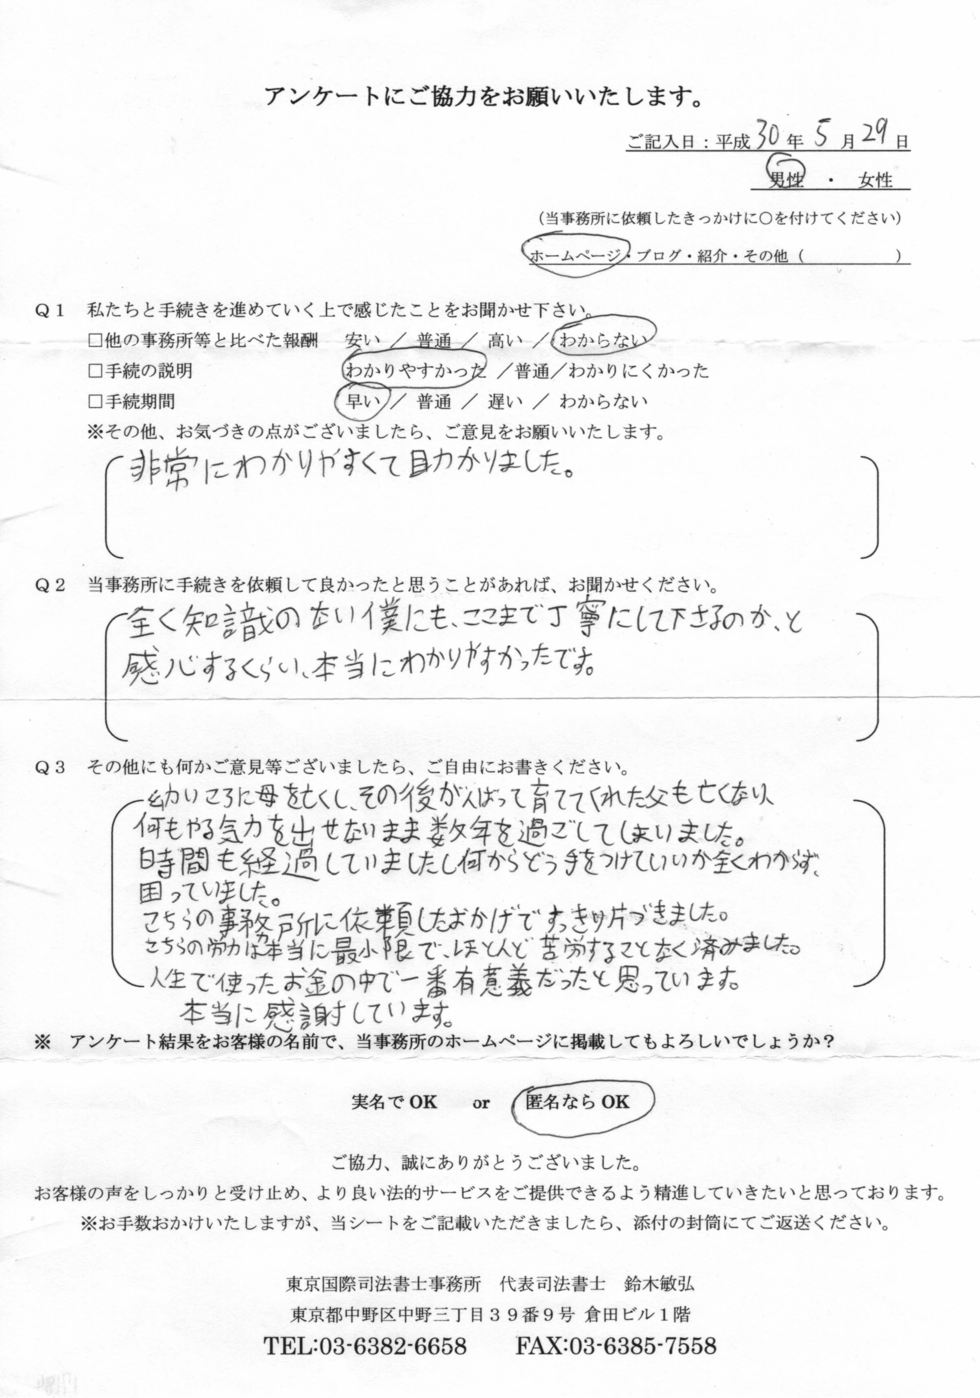 アンケートにご協力をお願いいたします。
ご記入日：平成30年5月29日
男性 ・ 女性
（当事務所に依頼したきっかけに○を付けてください）
ホームページ・ブログ・紹介・その他（　　　　　）
Ｑ１　私たちと手続きを進めていく上で感じたことをお聞かせ下さい。
□他の事務所等と比べた報酬　安い ／ 普通 ／ 高い ／ わからない
□手続の説明　わかりやすかった ／普通／わかりにくかった
□手続期間　早い ／ 普通 ／ 遅い ／ わからない
※その他、お気づきの点がございましたら、ご意見をお願いいたします。
非常にわかりやすくて助かりました。
Ｑ２　当事務所に手続きを依頼して良かったと思うことがあれば、お聞かせください。
全く知識のない僕にも、ここまで丁寧にして下さるのか、と
感心するくらい、本当にわかりやすかったです。
Ｑ３　その他にも何かご意見等ございましたら、ご自由にお書きください。
幼いころに母を亡くし、その後がんばって育ててくれた父も亡くなり、
何もやる気力を出せないまま数年を過ごしてしまいました。
時間も経過していましたし何からどう手をつけていいか全くわからず、
困っていました。
こちらの事務所に依頼したおかげですっきり片づきました。
こちらの労力は本当に最小限で、ほとんど苦労することなく済みました。
人生で使ったお金の中で一番有意義だったと思っています。
本当に感謝しています。
※　アンケート結果をお客様の名前で、当事務所のホームページに掲載してもよろしいでしょうか？
実名でOK　or　匿名ならOK
ご協力、誠にありがとうございました。
お客様の声をしっかりと受け止め、より良い法的サービスをご提供できるよう精進していきたいと思っております。
※お手数おかけいたしますが、当シートをご記載いただきましたら、添付の封筒にてご返送ください。
東京国際司法書士事務所　代表司法書士　鈴木敏弘
東京都中野区中野三丁目３９番９号 倉田ビル１階
TEL:03-6382-6658　FAX:03-6385-7558